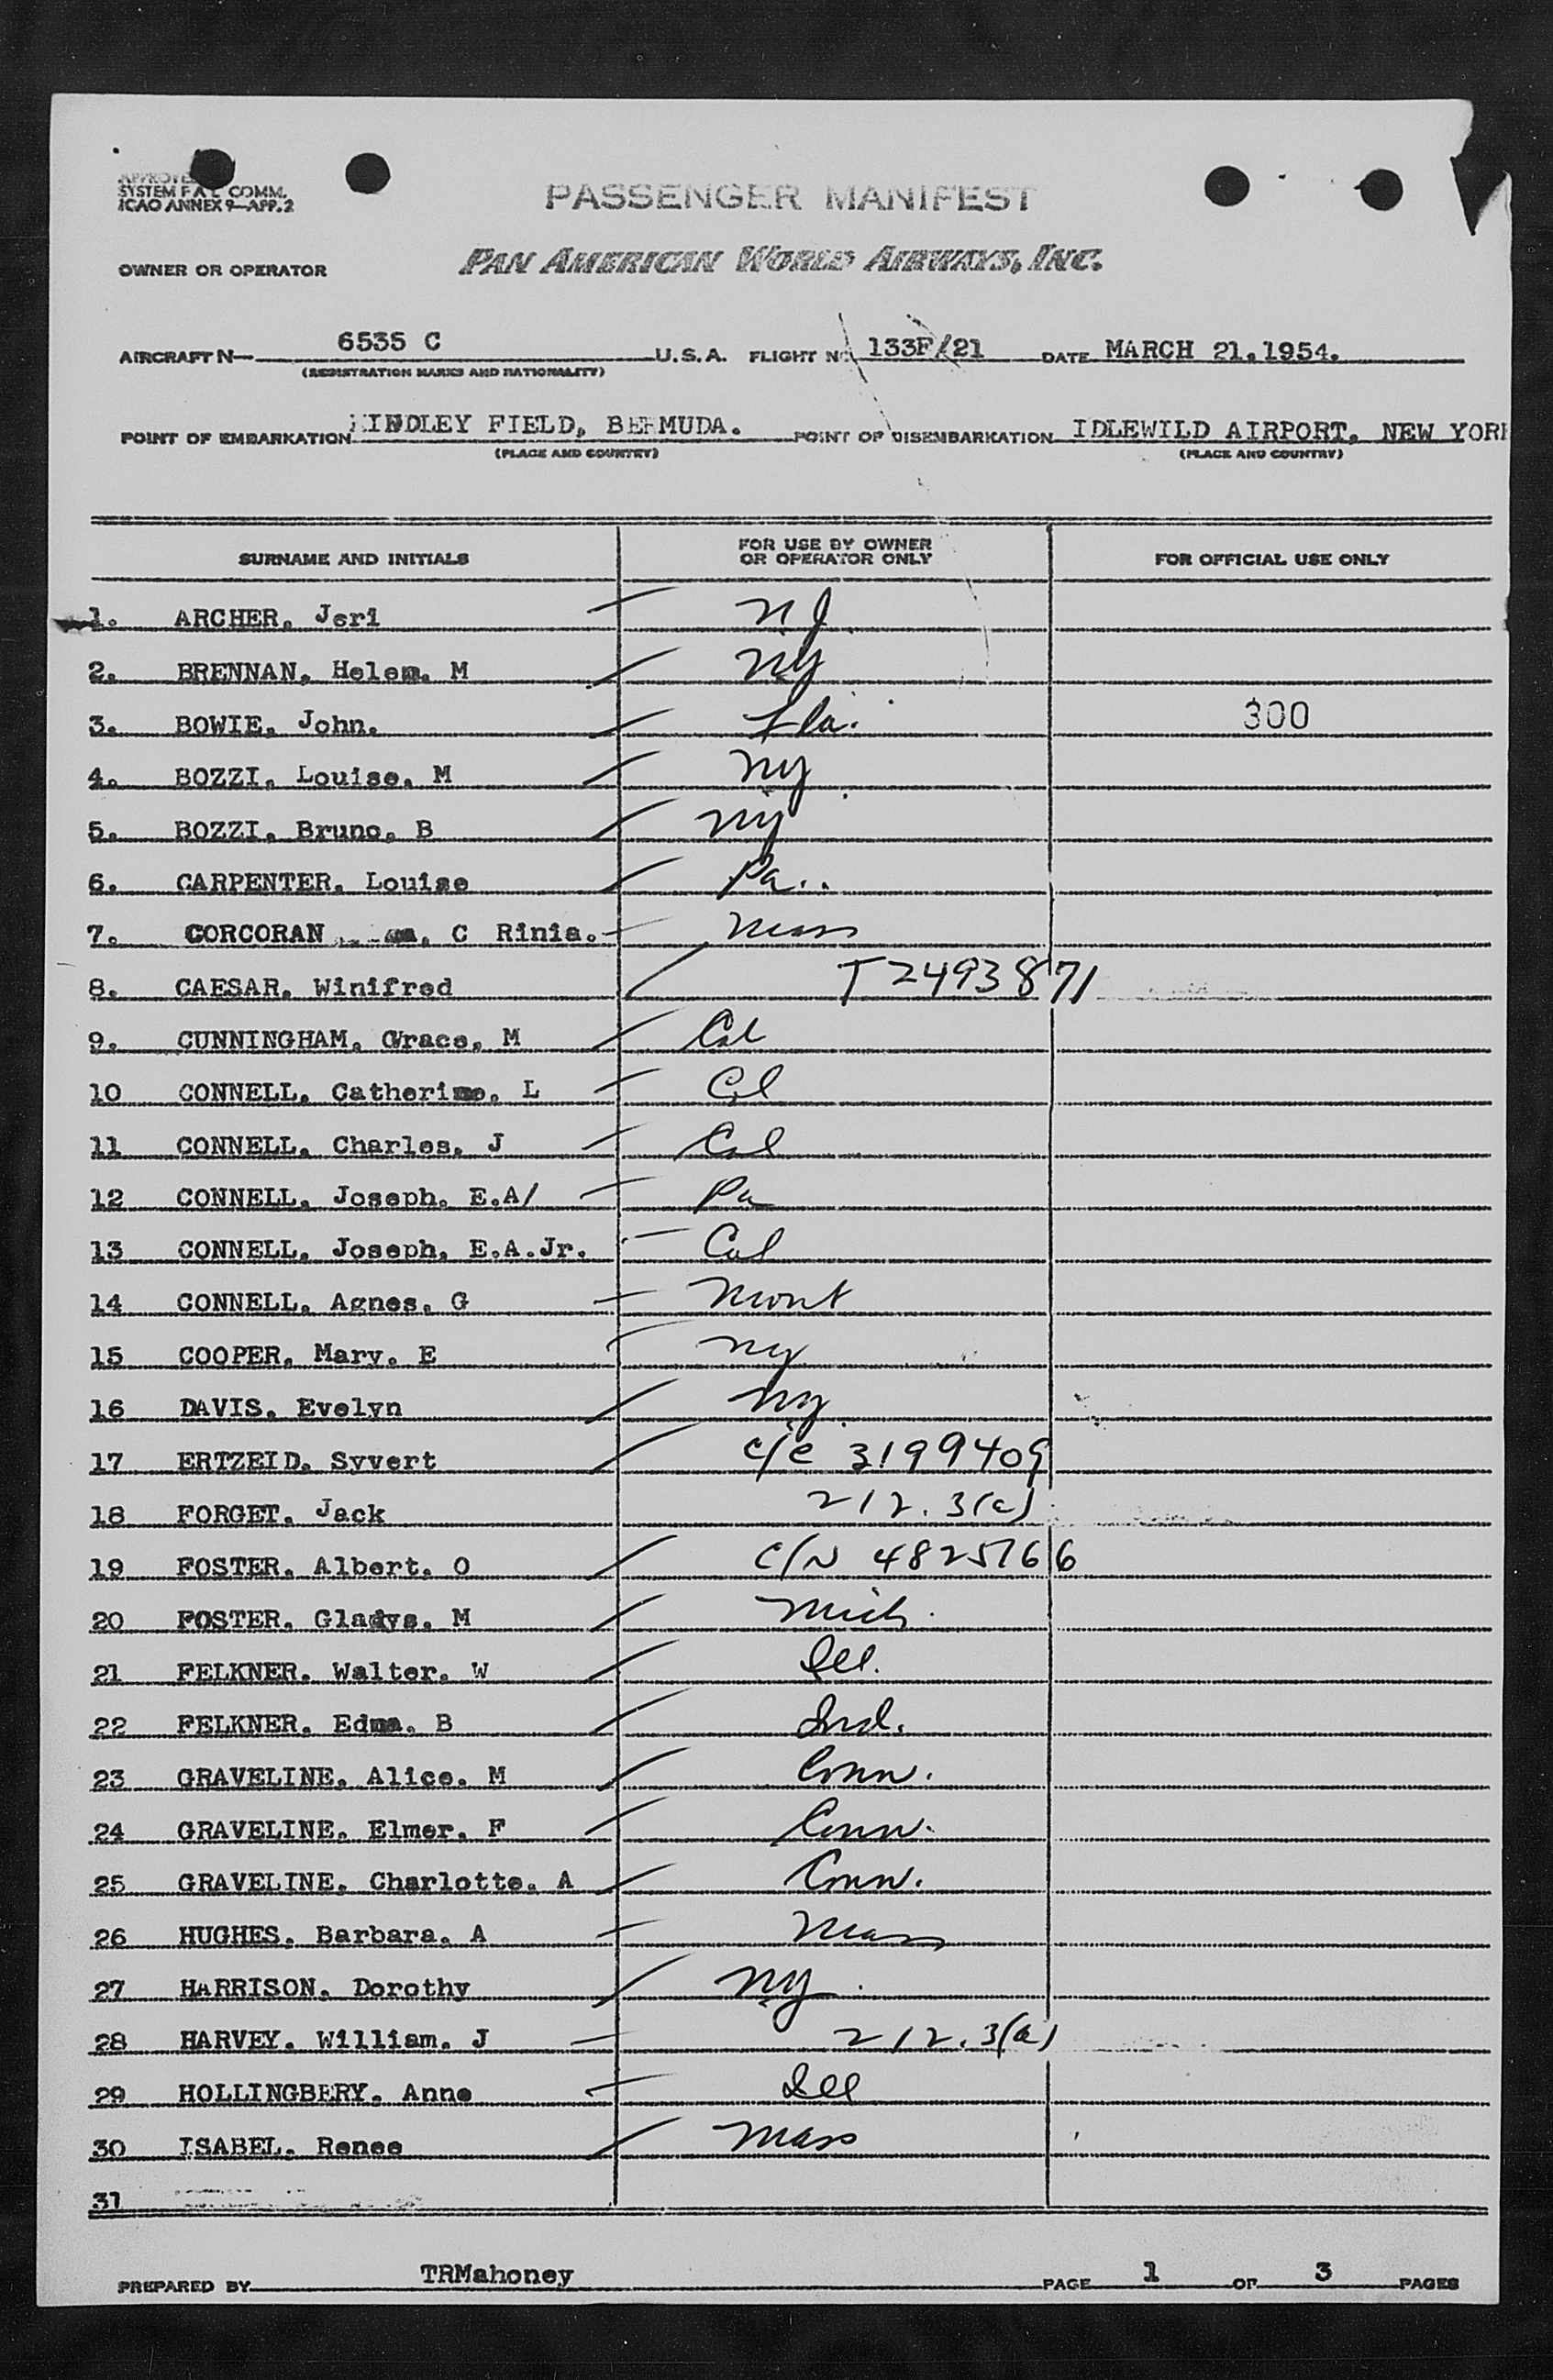 SYSTEM F A L COMM.
ICAO ANNEX 9—APP. 2
PASSENGER MANIFEST
OWNER OR OPERATOR PAN AMERICAN WORLD AIRWAYS, INC.
AIRCRAFT N— 6535 C U.S.A. FLIGHT NO 133F/21 DATE MARCH 21.1954.
(REGISTRATION MARKS AND NATIONALITY)
POINT OF EMBARKATION KINDLEY FIELD, BERMUDA. POINT OF DISEMBARKATION IDLEWILD AIRPORT, NEW YORK
(PLACE AND COUNTRY) (PLACE AND COUNTRY)
SURNAME AND INITIALS FOR USE BY OWNER OR OPERATOR ONLY FOR OFFICIAL USE ONLY
1. ARCHER, Jeri NJ
2. BRENNAN, Helen. M NY
3. BOWIE, John. Fla. 300
4. BOZZI, Louise. M NY
5. BOZZI, Bruno, B NY
6. CARPENTER, Louise Pa..
7. CORCORAN C Rinia. Mass
8. CAESAR, Winifred T2493871
9. CUNNINGHAM, Grace, M Cal
10 CONNELL, Catherine, L Cal
11 CONNELL, Charles, J Cal
12 CONNELL, Joseph. E.A/ Pa
13 CONNELL, Joseph, E.A.Jr. Cal
14 CONNELL, Agnes. G Mont
15 COOPER, Mary. E NY
16 DAVIS, Evelyn NY
17 ERTZEID, Syvert c/c 3199409
18 FORGET, Jack 212.3(a)
19 FOSTER, Albert. O C/N 4825766
20 FOSTER, Gladys. M Mich.
21 FELKNER, Walter. W Ill.
22 FELKNER, Edna. B Ind.
23 GRAVELINE, Alice. M Conn.
24 GRAVELINE, Elmer. F Conn.
25 GRAVELINE, Charlotte. A Conn.
26 HUGHES, Barbara. A Mass
27 HARRISON, Dorothy NY.
28 HARVEY, William. J 212.3(a)
29 HOLLINGBERY, Anne Ill
30 ISABEL, Renee Mass
31
PREPARED BY TRMahoney PAGE 1 OF 3 PAGES